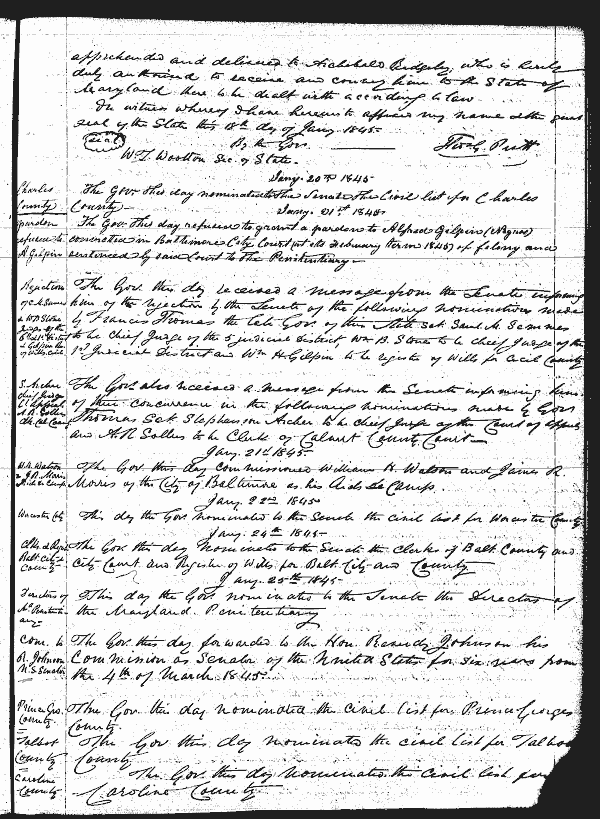 apprehended and delivered to Archibald Ridgely, who is hereby
duly authorised to receive and convey him to the State of
Maryland there to be dealt with according to law
In witness whereof I have hereunto affixed my name & the great
seal of the State this 18th day of Jany. 1845
Seal By the Gov.
Thos. G. Pratt
Wm T. Wootton Sec. of State.
Jany. 20th 1845
Charles County
The Gov. this day nominated to the Senate the Civil list for Charles
County
Jany. 21st 1845
pardon refused to A Gilpin
The Gov. this day refused to grant a pardon to Alfred Gilpin (Negro)
convicted in Baltimore City Court at its February term 1845 of felony and
sentenced by said Court to the Penitentiary
Rejection of
The Gov. this day received a message from the Senate informing
him of the rejection by the Senate of the following nominations made
by Francis Thomas the late Gov. of this State Sct. Saml. M. Semmes
to be chief Judge of the 5 judicial District Wm B. Stone to be chief Judge of the
1st Judicial District and Wm H. Gilpin to be register of Wills for Cecil County
S. Archer chief Judge Ct. Appeals
The Gov. also received a message from the Senate informing him
of their concurrence in the following nominations made by Gov.
Thomas Sct. Stephenson Archer to be chief Judge of the Court of Appeals
and A. R. Sollers to be Clerk of Calvert County Court
Jany. 21st 1845
W. H. Watson & J. R. Morris Aids de Camp
The Gov. this day commissioned William H. Watson and James R
Morris of the City of Baltimore as his Aids de Camp
Jany. 22nd 1845
Worcester Coty
This day the Gov. nominated to the Senate the civil list for Worcester County
Jany. 24th 1845
Clks. & Regst. Balt. City & County
The Gov. this day Nominated to the Senate the Clerks of Balt County and
City Court and Register of Wills for Balt. City and County
Jany. 25th 1845
Directors of Md. Penitentiary
This day the Gov. nominates to the Senate the Directors of
the Maryland Penitentiary
Com. to R. Johnson U. S. Senator
The Gov. this day forwarded to the Hon. Reverdy Johnson his
Commission as Senator of the United States for six years from
the 4th of March 1845
Prince Geo. County.
The Gov. this day nominated the civil list for Prince Georges
County
Talbot County
The Gov this day nominated the civil list for Talbot
County
Caroline County
The Gov. this day nominated the civil list for
Caroline County